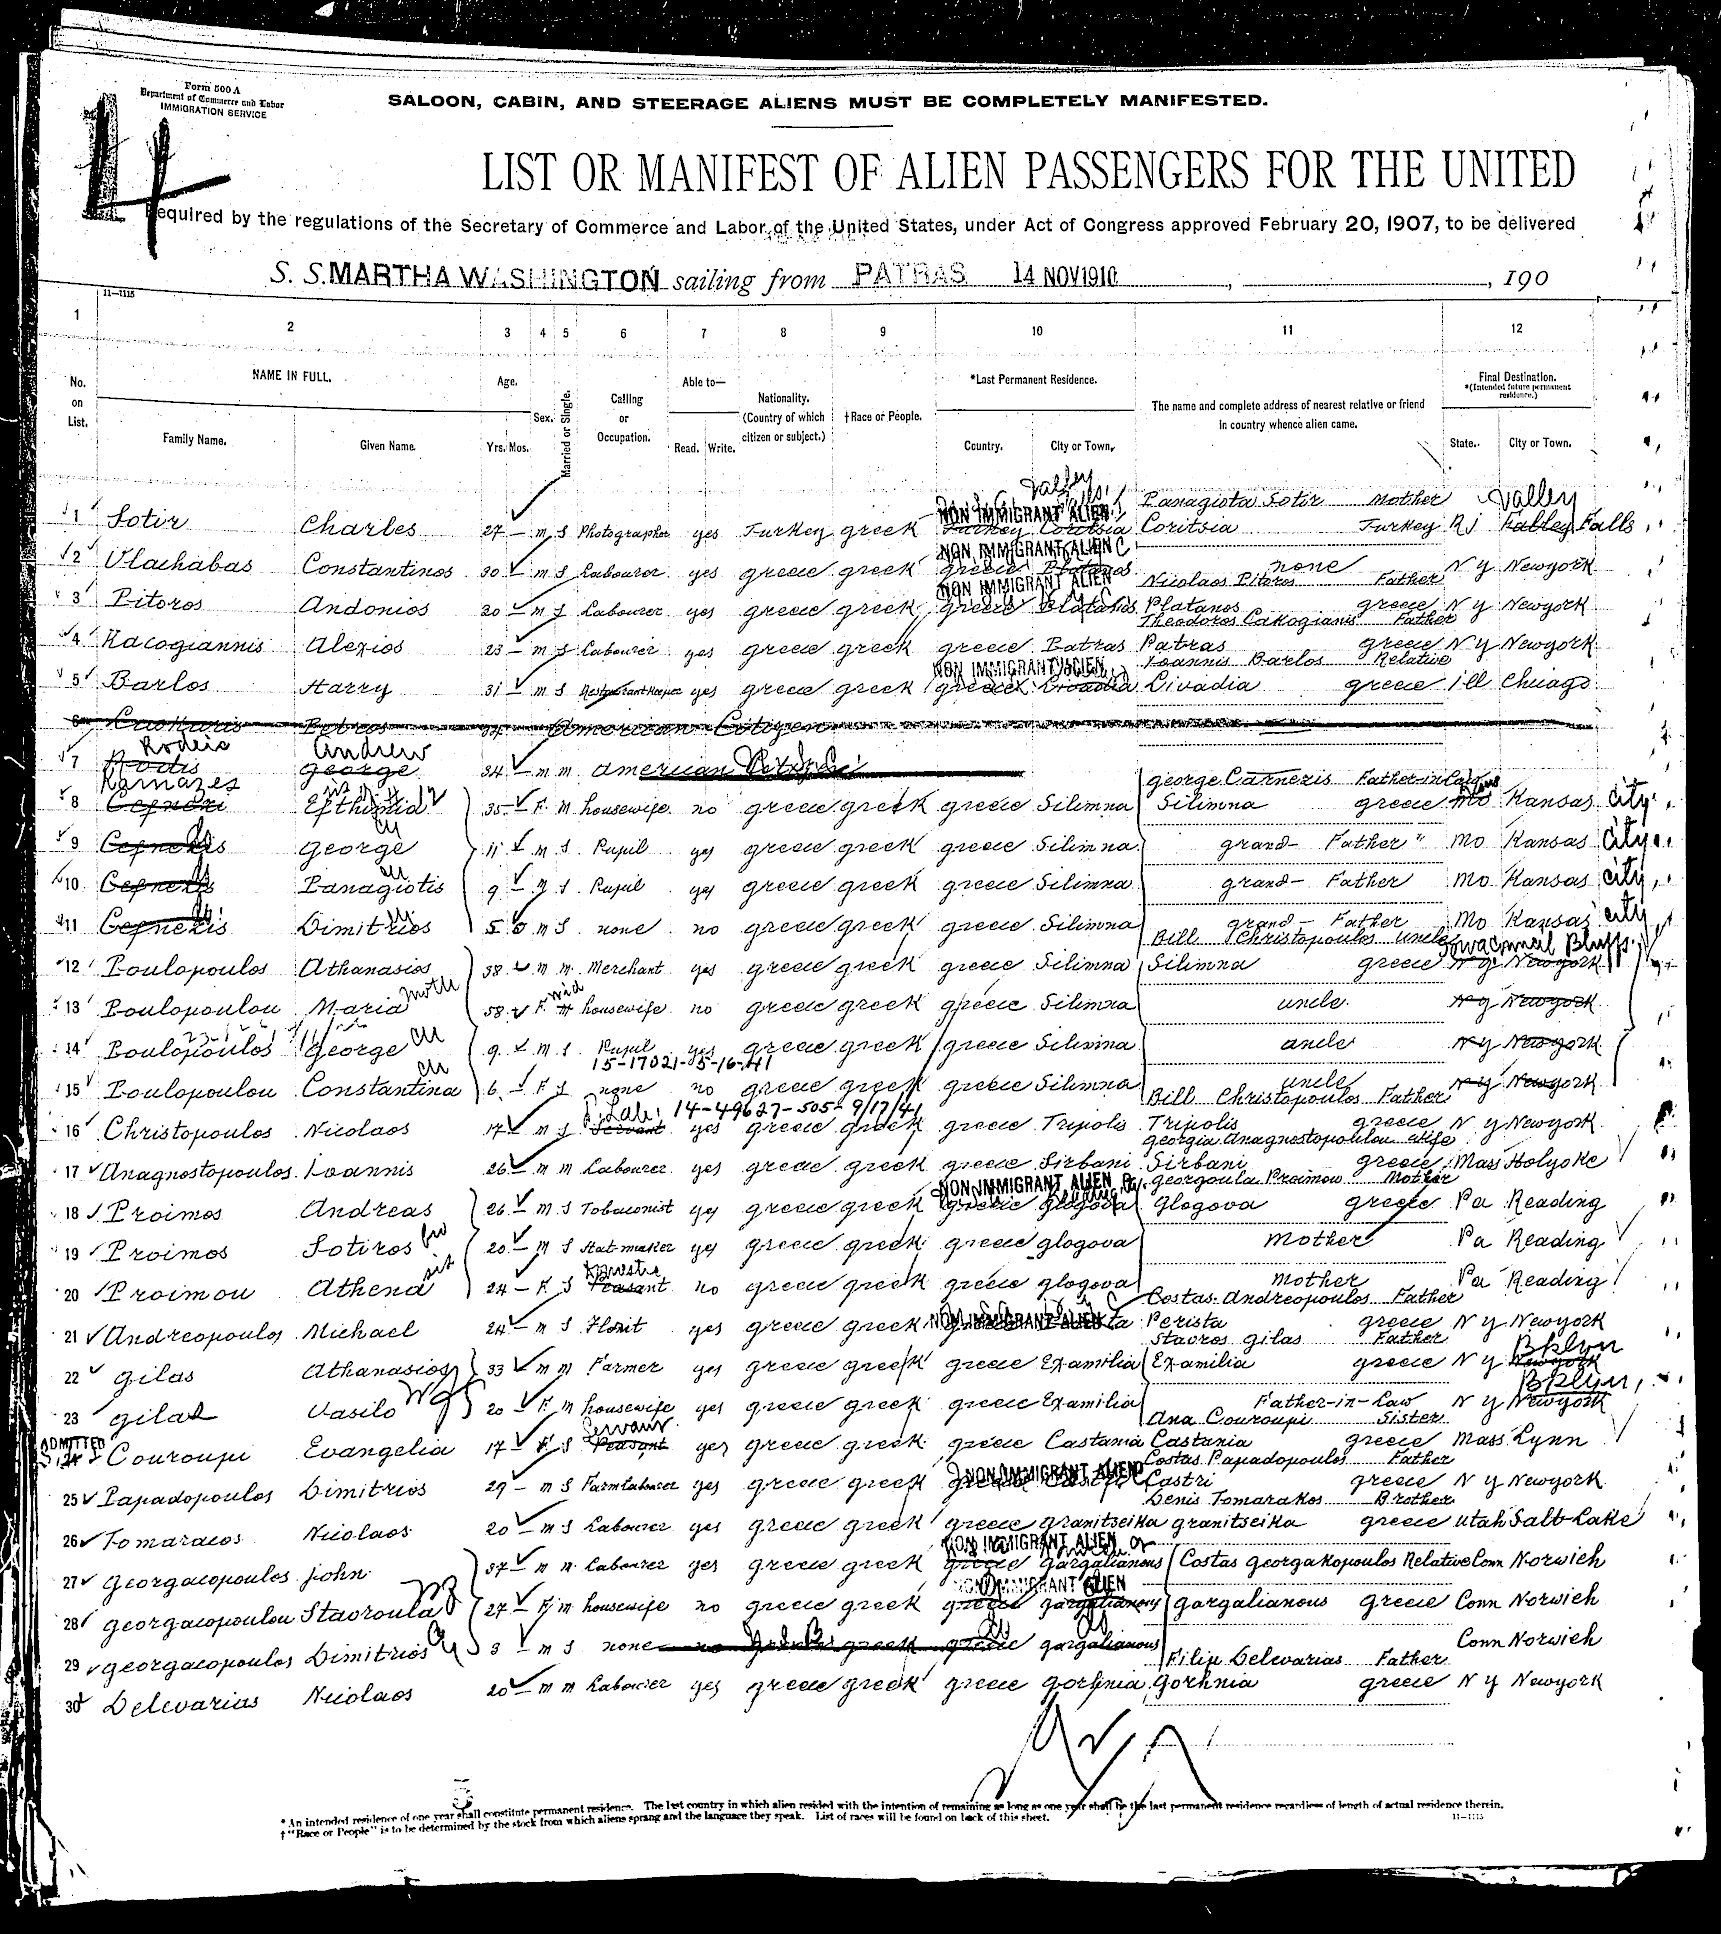 Form 500 A
Department of Commerce and Labor
IMMIGRATION SERVICE
SALOON, CABIN, AND STEERAGE ALIENS MUST BE COMPLETELY MANIFESTED.
LIST OR MANIFEST OF ALIEN PASSENGERS FOR THE UNITED
Required by the regulations of the Secretary of Commerce and Labor of the United States, under Act of Congress approved February 20, 1907, to be delivered
S. S. MARTHA WASHINGTON sailing from PATRAS 14 NOV 1910, 190
11—1115
1 2 3 4 5 6 7 8 9 10 11 12
No. on List. NAME IN FULL. Family Name. Given Name. Age. Yrs. Mos. Sex. Married or Single. Calling or Occupation. Able to— Read. Write. Nationality. (Country of which citizen or subject.) †Race or People. *Last Permanent Residence. Country. City or Town. The name and complete address of nearest relative or friend in country whence alien came. Final Destination. *(Intended future permanent residence.) State. City or Town.
Valley
NON IMMIGRANT ALIEN Panagiota Sotir Mother Valley
1 Sotir Charles 27 m S Photographer yes Turkey greek Turkey Coritsia Coritsia Turkey RI Falley Falls
NON IMMIGRANT ALIEN
2 Vlachabas Constantinos 30 m S Labourer yes greece greek greece Platanos none N y Newyork
NON IMMIGRANT ALIEN Nicolaos Pitoros Father
3 Pitoros Andonios 20 m S Labourer yes greece greek greece Platanos Platanos greece N y Newyork
Theodoros Cakogianis Father
4 Kacogiannis Alexios 23 m S Labourer yes greece greek greece Patras Patras greece N y Newyork
NON IMMIGRANT ALIEN Ioannis Barlos Relative
5 Barlos Harry 31 m S Restaurant Keeper yes greece greek greece Livadia Livadia greece Ill Chicago
6 Petros American Citizen
Rodeis Andrew
7 Rodis George 34 m m American
Karnazes george Carnezis Father-in-Law
8 Efthimia 35 F M housewife no greece greek greece Silimna Silimna greece Mo Kansas City
9 George 11 m S Pupil yes greece greek greece Silimna grand-Father " Mo Kansas City
10 Panagiotis 9 M S Pupil yes greece greek greece Silimna grand-Father Mo Kansas City
11 Dimitrios 5 m S none no greece greek greece Silimna grand-Father Mo Kansas City
Bill Christopoulos uncle
12 Poulopoulos Athanasios 38 m m Merchant yes greece greek greece Silimna Silimna greece N y Newyork
moth wid
13 Poulopoulou Maria 58 F M housewife no greece greek greece Silimna uncle N y Newyork
14 Poulopoulos George ch 9 m S Pupil yes greece greek greece Silimna uncle N y Newyork
ch
15 Poulopoulou Constantina 6 F S none no greece greek greece Silimna uncle N y Newyork
14-49627-505- 9/17/41 Bill Christopoulos Father
16 Christopoulos Nicolaos 17 m S Servant yes greece greek greece Tripolis Tripolis greece N y Newyork
georgia Anagnostopoulou wife
17 Anagnostopoulos Ioannis 26 m m Labourer yes greece greek greece Sirbani Sirbani greece Mass Holyoke
NON IMMIGRANT ALIEN georgoula Proimou Mother
18 Proimos Andreas 26 m S Tobaconist yes greece greek greece glogova Glogova greece Pa Reading
19 Proimos Sotiros 20 M S Hat-maker yes greece greek greece glogova Mother Pa Reading
sis
20 Proimou Athena 24 F S Peasant no greece greek greece glogova Mother Pa Reading
Costas Andreopoulos Father
21 Andreopoulos Michael 24 m S Florist yes greece greek NON IMMIGRANT ALIEN Perista greece N y Newyork
Stavros gilas Father Bklyn
22 Gilas Athanasios 33 m m Farmer yes greece greek greece Examilia Examilia greece N y Newyork
Bklyn
23 Gilas Vasilo 20 F m housewife yes greece greek greece Examilia Father-in-law N y Newyork
ADMITTED Servant Ana Couroupi Sister
24 Couroupi Evangelia 17 F S Peasant yes greece greek greece Castania Castania greece Mass Lynn
NON IMMIGRANT ALIEN Costas Papadopoulos Father
25 Papadopoulos Dimitrios 29 m S Farmlabourer yes greece greek greece Castri Castri greece N y Newyork
Denis Tomarakos Brother
26 Tomaracos Nicolaos 20 m S Labourer yes greece greek greece granitseika granitseika greece Utah Salt-Lake
NON IMMIGRANT ALIEN
27 Georgacopoulos John 37 m m Labourer yes greece greek greece gargalianous Costas georgakopoulos Relative Conn Norwich
NON IMMIGRANT ALIEN
28 georgacopoulou Stavroula 27 F m housewife no greece greek greece gargalianous gargalianous greece Conn Norwich
29 georgacopoulos Dimitrios 3 m S none no greek greece gargalianous Conn Norwich
Filip Delevarias Father
30 Delevarias Nicolaos 20 m m Labourer yes greece greek greece gorhnia gorhnia greece N y Newyork
* An intended residence of one year shall constitute permanent residence. The last country in which alien resided with the intention of remaining as long as one year shall be the last permanent residence regardless of length of actual residence therein.
† "Race or People" is to be determined by the stock from which aliens sprang and the language they speak. List of races will be found on back of this sheet.
11—1115